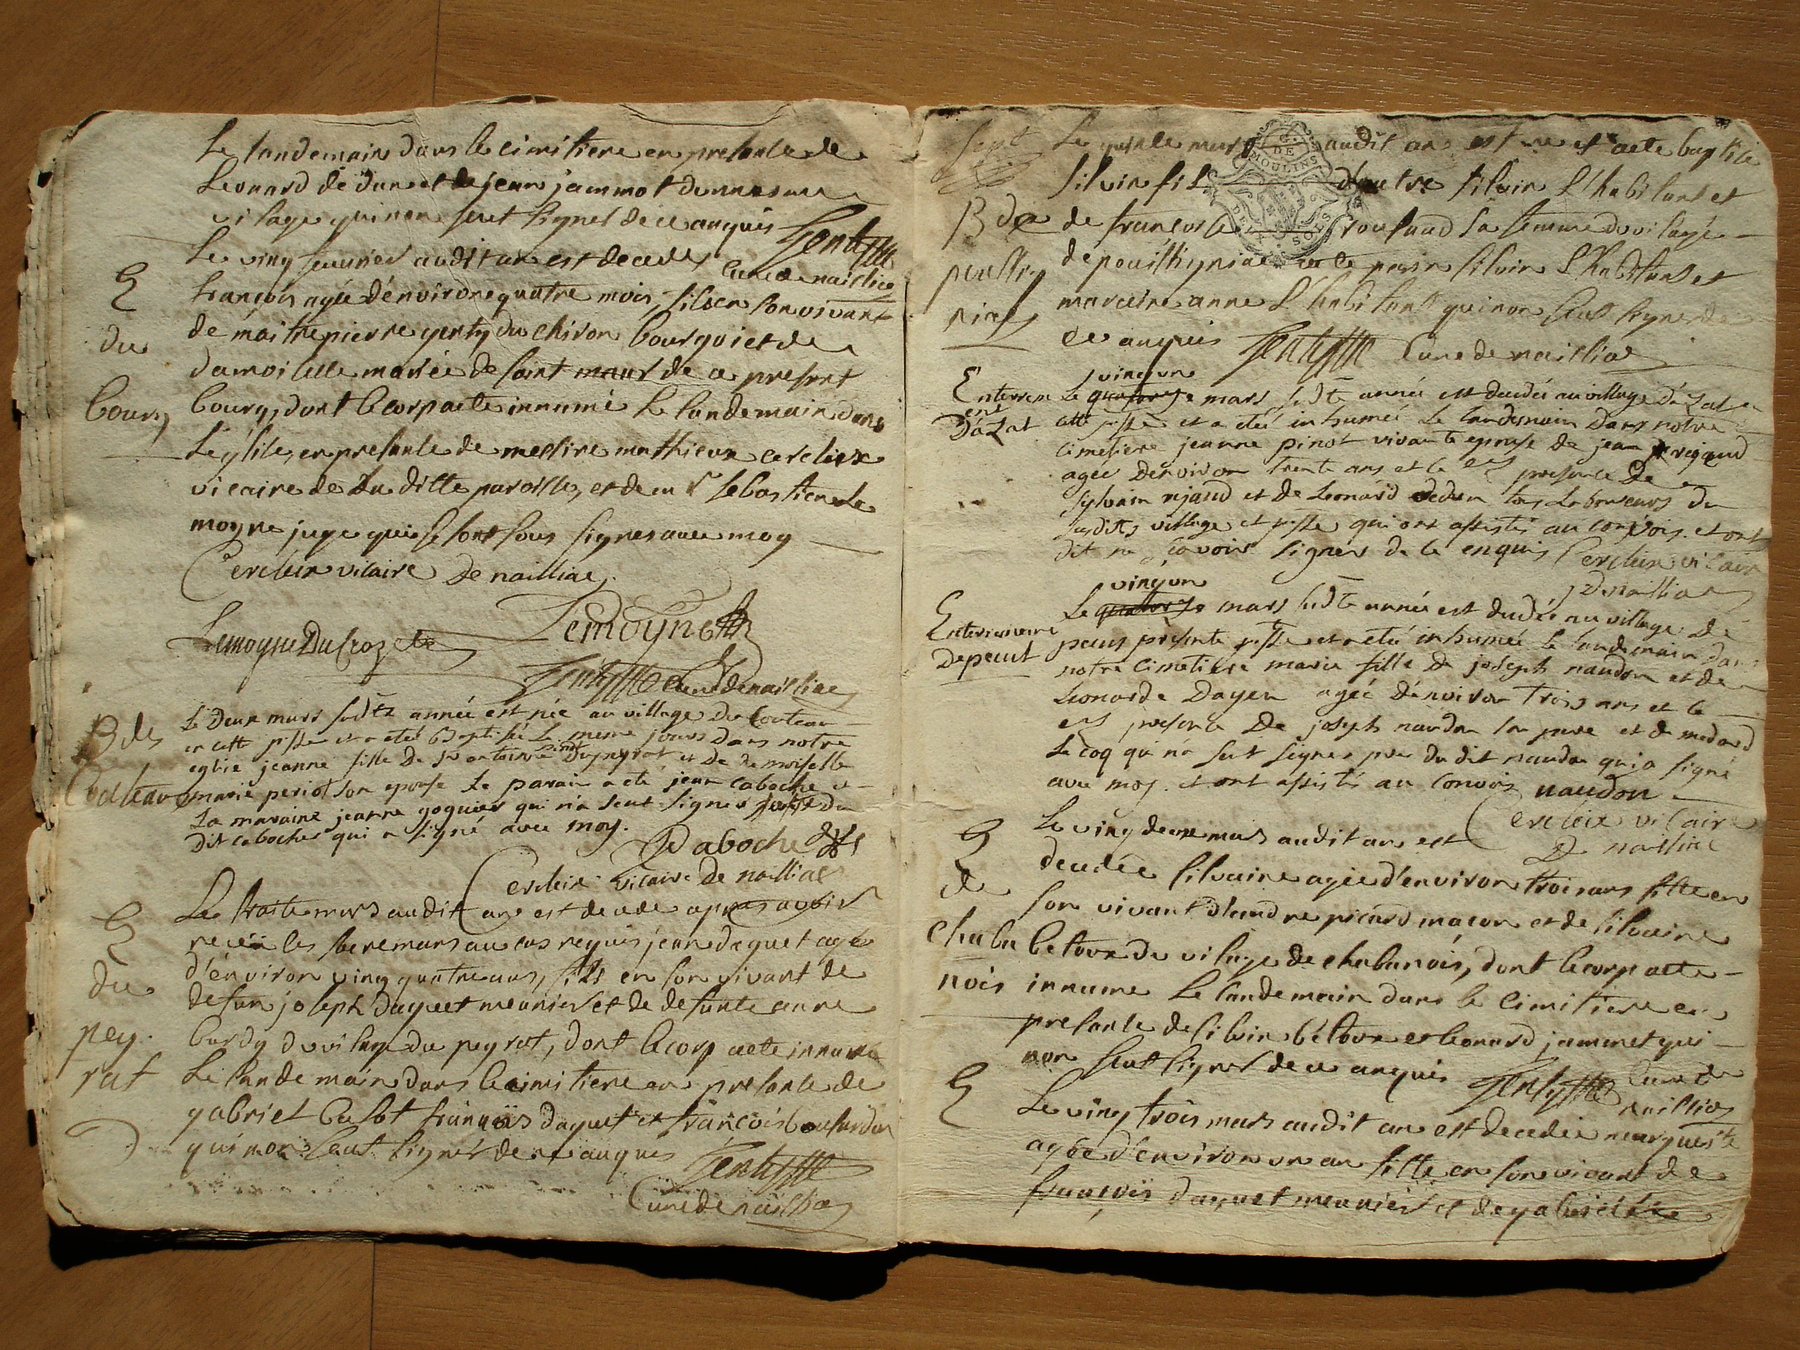 Le landemain dans le cimitiere en presante de
Leonard de dun et de jean jammot du mesme
vilage qui non seut signer de ce anquis Gentyffe
Le vingt feuvrier audit an est decedes Curé de naillac
E françois agée d'énviron quatre mois, fils en son vivant
de maitre pierre genty du chiron bourgoiet de
du damoiselle mariée de saint maur de ce present
bourg bourg, dont le corp aete innumé le landemain dans
L'église, en presante de messire mathieux cercleix
vicaire de La ditte paroisse, et de m sebastien le
moyne juge qui se sont sous signes avec moy
Cercleix vicaire De nailliac
Lemoyne Du Crozete Lemoyne
Gentyffe Curé de nailliac
B de Le Deux mars année est née au village Du Couteau
en cette psse et a eté baptisée le meme jours Dans notre
eglise jeanne fille De Dupeyrat et De Demoiselle
Couteau marie periot son epouse Le parain a eté jean caboche et
La maraine jeanne goguier qui n'a seut signer Du
Dit caboche qui a signé avec moy.
Caboche
Cercleix vicaire De nailliac
E Le traite mars audit an est decede apres avoir
recëu les sacremans au cas requis jean daquet agée
d'énviron vingt quatre ans, fils en son vivant de
du defun joseph daquet meunier et de defunte anne
pey. burdy du vilage du peyrat, dont le corp aete innumé
rat Le landemain dans le cimitiere en presante de
gabriel françois daquet et françois
qui non seut signer de ce anquis Gentyffe
Curé de nailliac
Sept Le quinze mars audit an est né et aete baptisé
silvin fils d'autre silvin L'habitant et
B de de françoise roufaud sa femme du vilage
de le parin silvin L'habitant et
mareine anne L'habitant qui non seut signer de
ce anquis Gentyffe Curé de nailliac
vingt un
Enterrem Le quatorze mars susdte année est decedée au village
cette psse et a eté inhumée Le landemain Dans notre
cimetiere jeanne pinot vivante epouse de jean rigaud
agée Denviron trente ans et le en presence De
sylvain rejaud et de Leonard dedun tous Laboureurs du
susdits village et psse qui ont assistés au convois et ont
dit ne scavoir signer de ce enquis Cercleix vicaire
De nailliac
vingt un
Enterrement Le quatorze mars susdte année est decedée au village De
De presente psse et a eté inhumée Le landemain dans
notre cimetiere marie fille De joseph naudon et de
Leonarde Dayen agée d'énviron trois ans et ce
en presence De joseph naudon son pere et de medard
Le coq qui na seut signer du dit naudon qui a signé
avec moy et ont assistés au convois naudon
Cercleix vicaire
De nailliac
E Le vingt deux mars audit an est
decedée silvaine agée d'énviron trois ans fille en
de son vivant d'andre picard maçon et de silvaine
chaba betoux du vilage de chabanois, dont le corp aete
nois innumé Le landemain dans le cimitiere en
presante de silvin betoux et leonard jammet qui
non seut signer de ce anquis Gentyffe Curé de
nailliac
E Le vingt trois mars audit an est decedée marguerite
agée d'énviron un an fille en son vivant de
françois daquet meunier et de